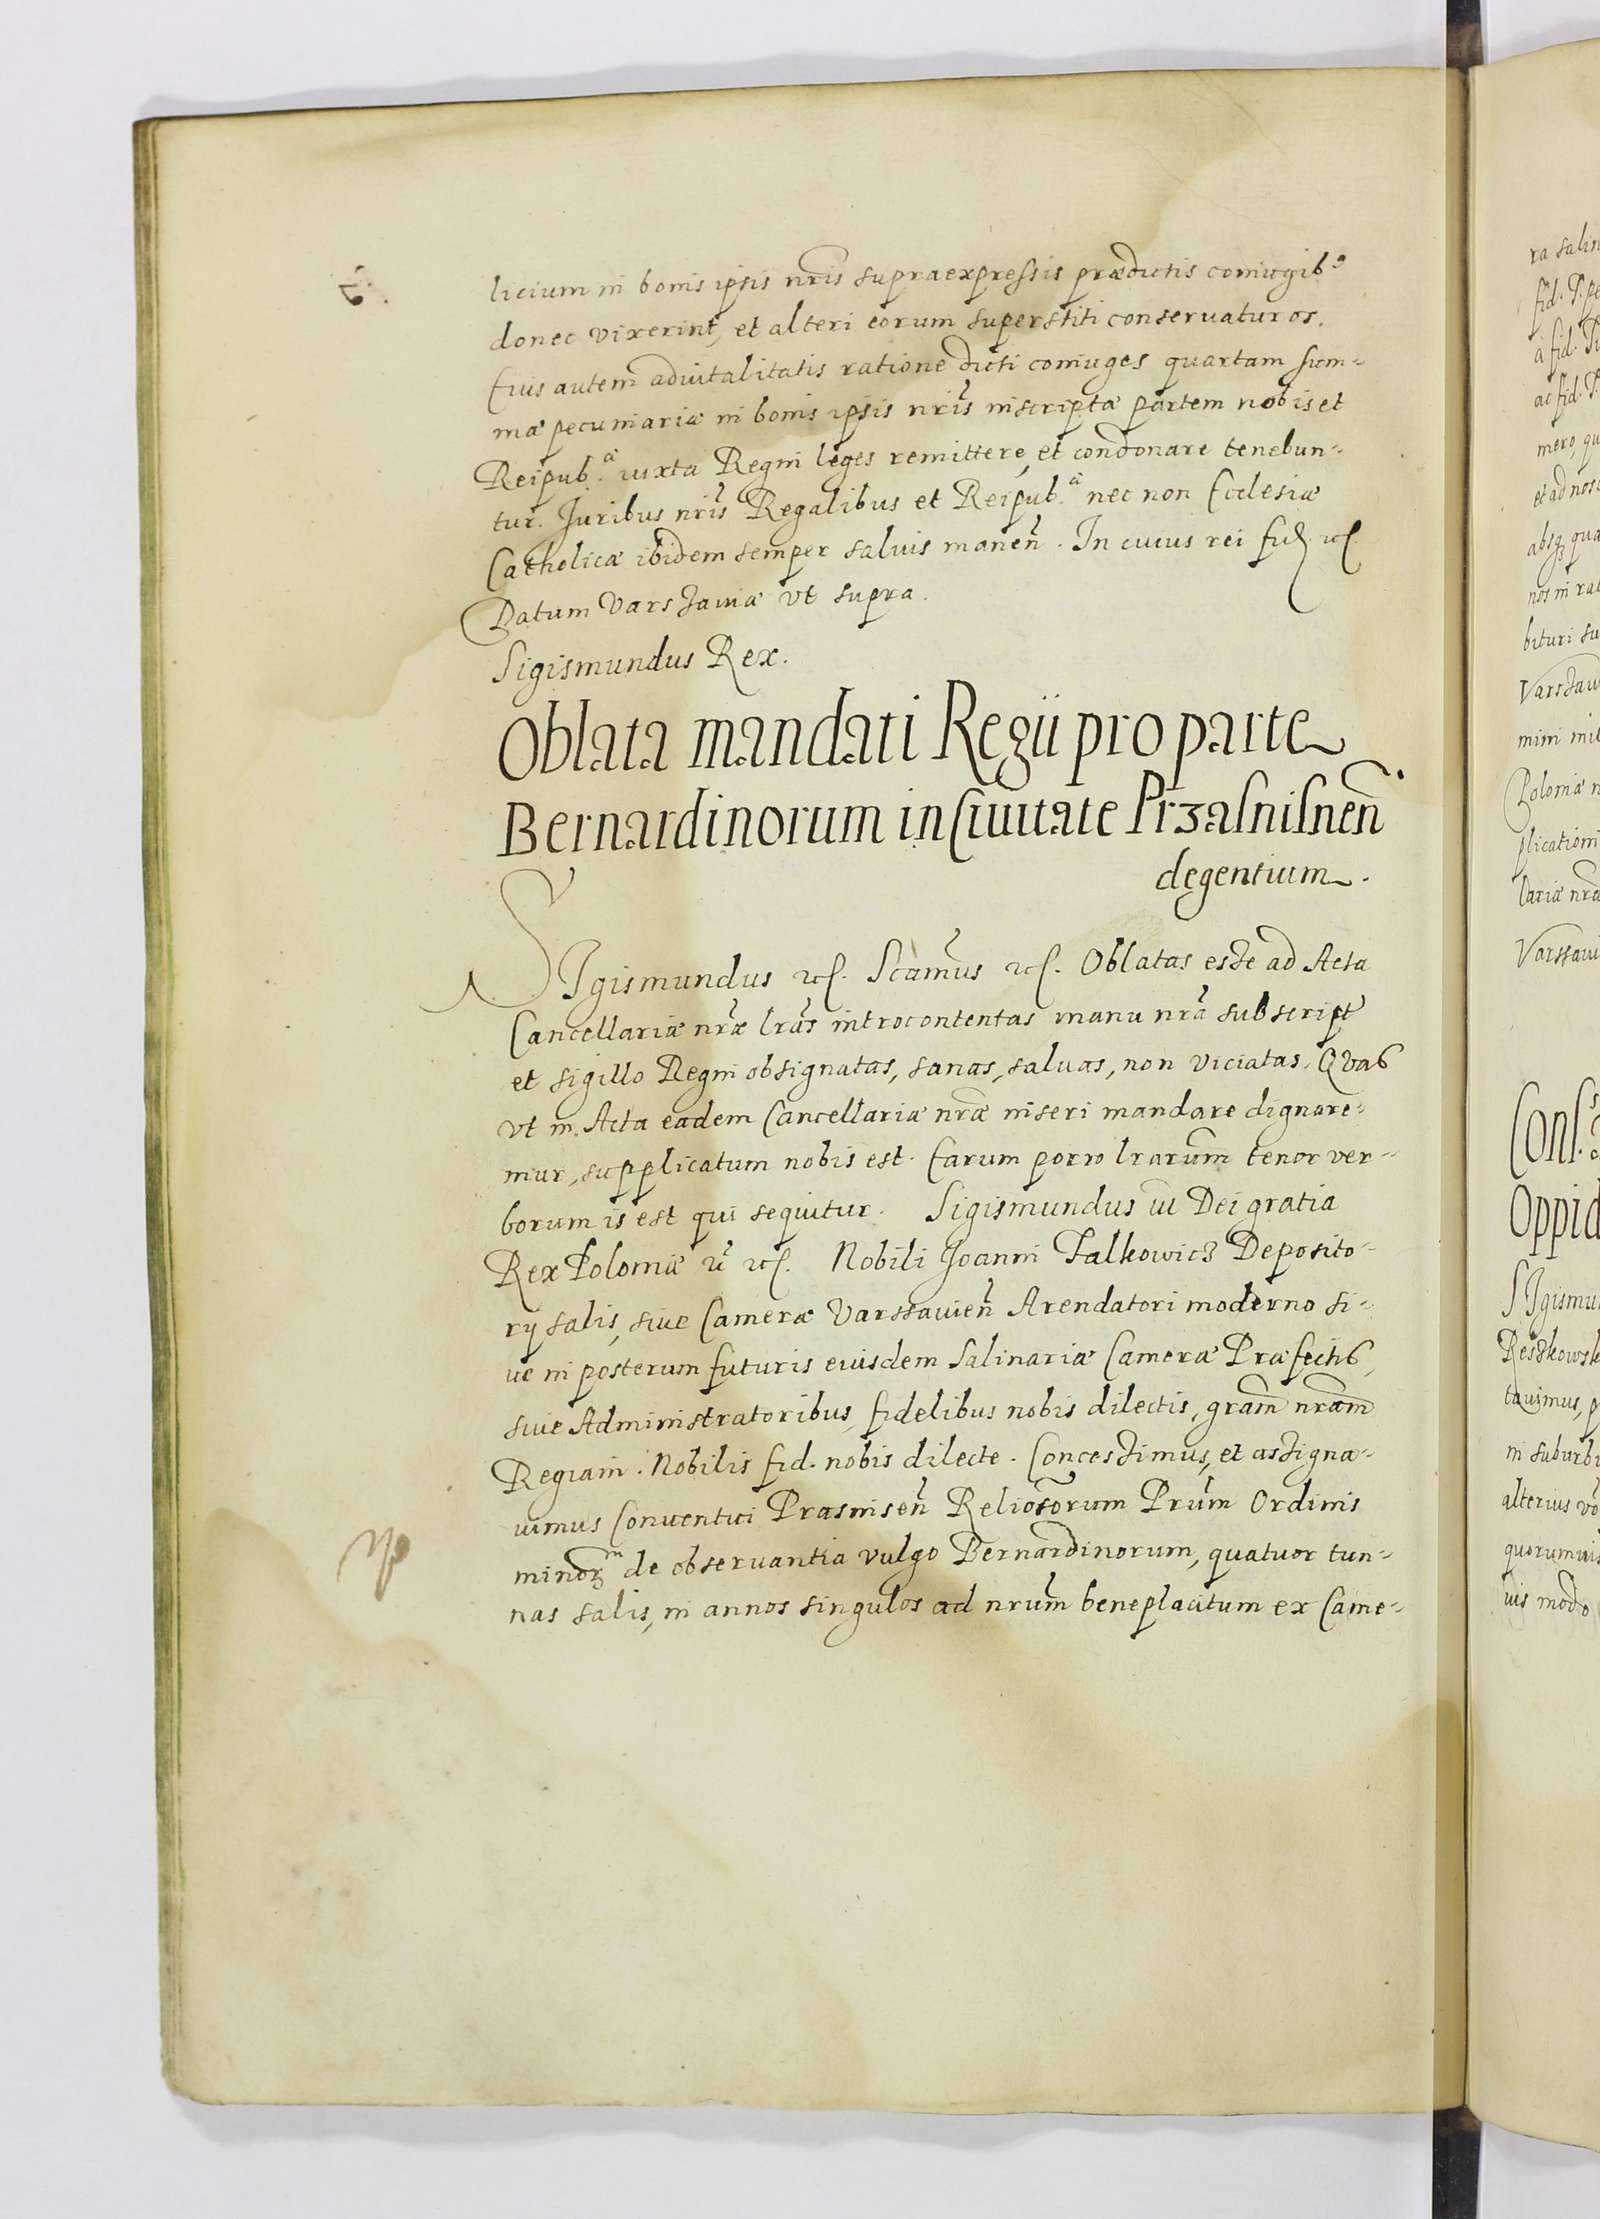 licium in bonis ipsis nris supraexpressis prædictis coniugib⁹
donec vixerint, et alteri eorum superstiti conservaturos.
Eius autem advitalitatis ratione dicti coniuges quartam sum-
mæ pecuniariæ in bonis ipsis nris inscriptæ partem nobis et
Reipub.ᵃᵉ iuxta Regni leges remittere, et condonare tenebun-
tur. Juribus nris Regalibus et Reipub.ᵃᵉ nec non Ecclesiæ
Catholicæ ibidem semper salvis manen̄. In cuius rei fid. etc.
Datum Varszaviæ vt supra.
Sigismundus Rex.
Oblata mandati Regii pro parte
Bernardinorum in Civitate Przasnisnen̄
degentium.
SIgismundus etc. Scamus etc. Oblatas esse ad Acta
Cancellariæ nræ lras introcontentas manu nra subscript
et sigillo Regni obsignatas, sanas, salvas, non viciatas. Quas
vt in Acta eadem Cancellariæ nræ inseri mandare dignare-
mur, supplicatum nobis est. Earum porro lrarum tenor ver-
borum is est qui sequitur. Sigismundus iii Dei gratia
Rex Poloniæ etc. Nobili Joanni Falkowicz Deposito-
rÿ salis, sive Cameræ Varssavien̄ Arendatori moderno si-
ve in posterum futuris eiusdem Salinariæ Cameræ Præfectis,
sive Administratoribus, fidelibus nobis dilectis, gram̄ nram̄
Regiam. Nobilis fid. nobis dilecte. Concessimus, et assigna-
vimus Conventui Prasnisen̄ Reliosorum Prum̄ Ordinis
minorᵐ de observantia vulgo Bernardinorum, quatuor tun-
nas salis, in annos singulos ad nrum̄ beneplacitum ex Came-
ra salin
fid. T. pe
à fid.
ac fid. T.
mero, qu
et ad nos
absq; qua
nos in rat
bituri su
Varszav
mini
Poloniæ n
plicationi
lariæ nra
Varssavi
Cons.
Oppid
SIgismu
Reszkowsk
tavimus, p
in suburbi
alterius vo
quorumvis
vis modo